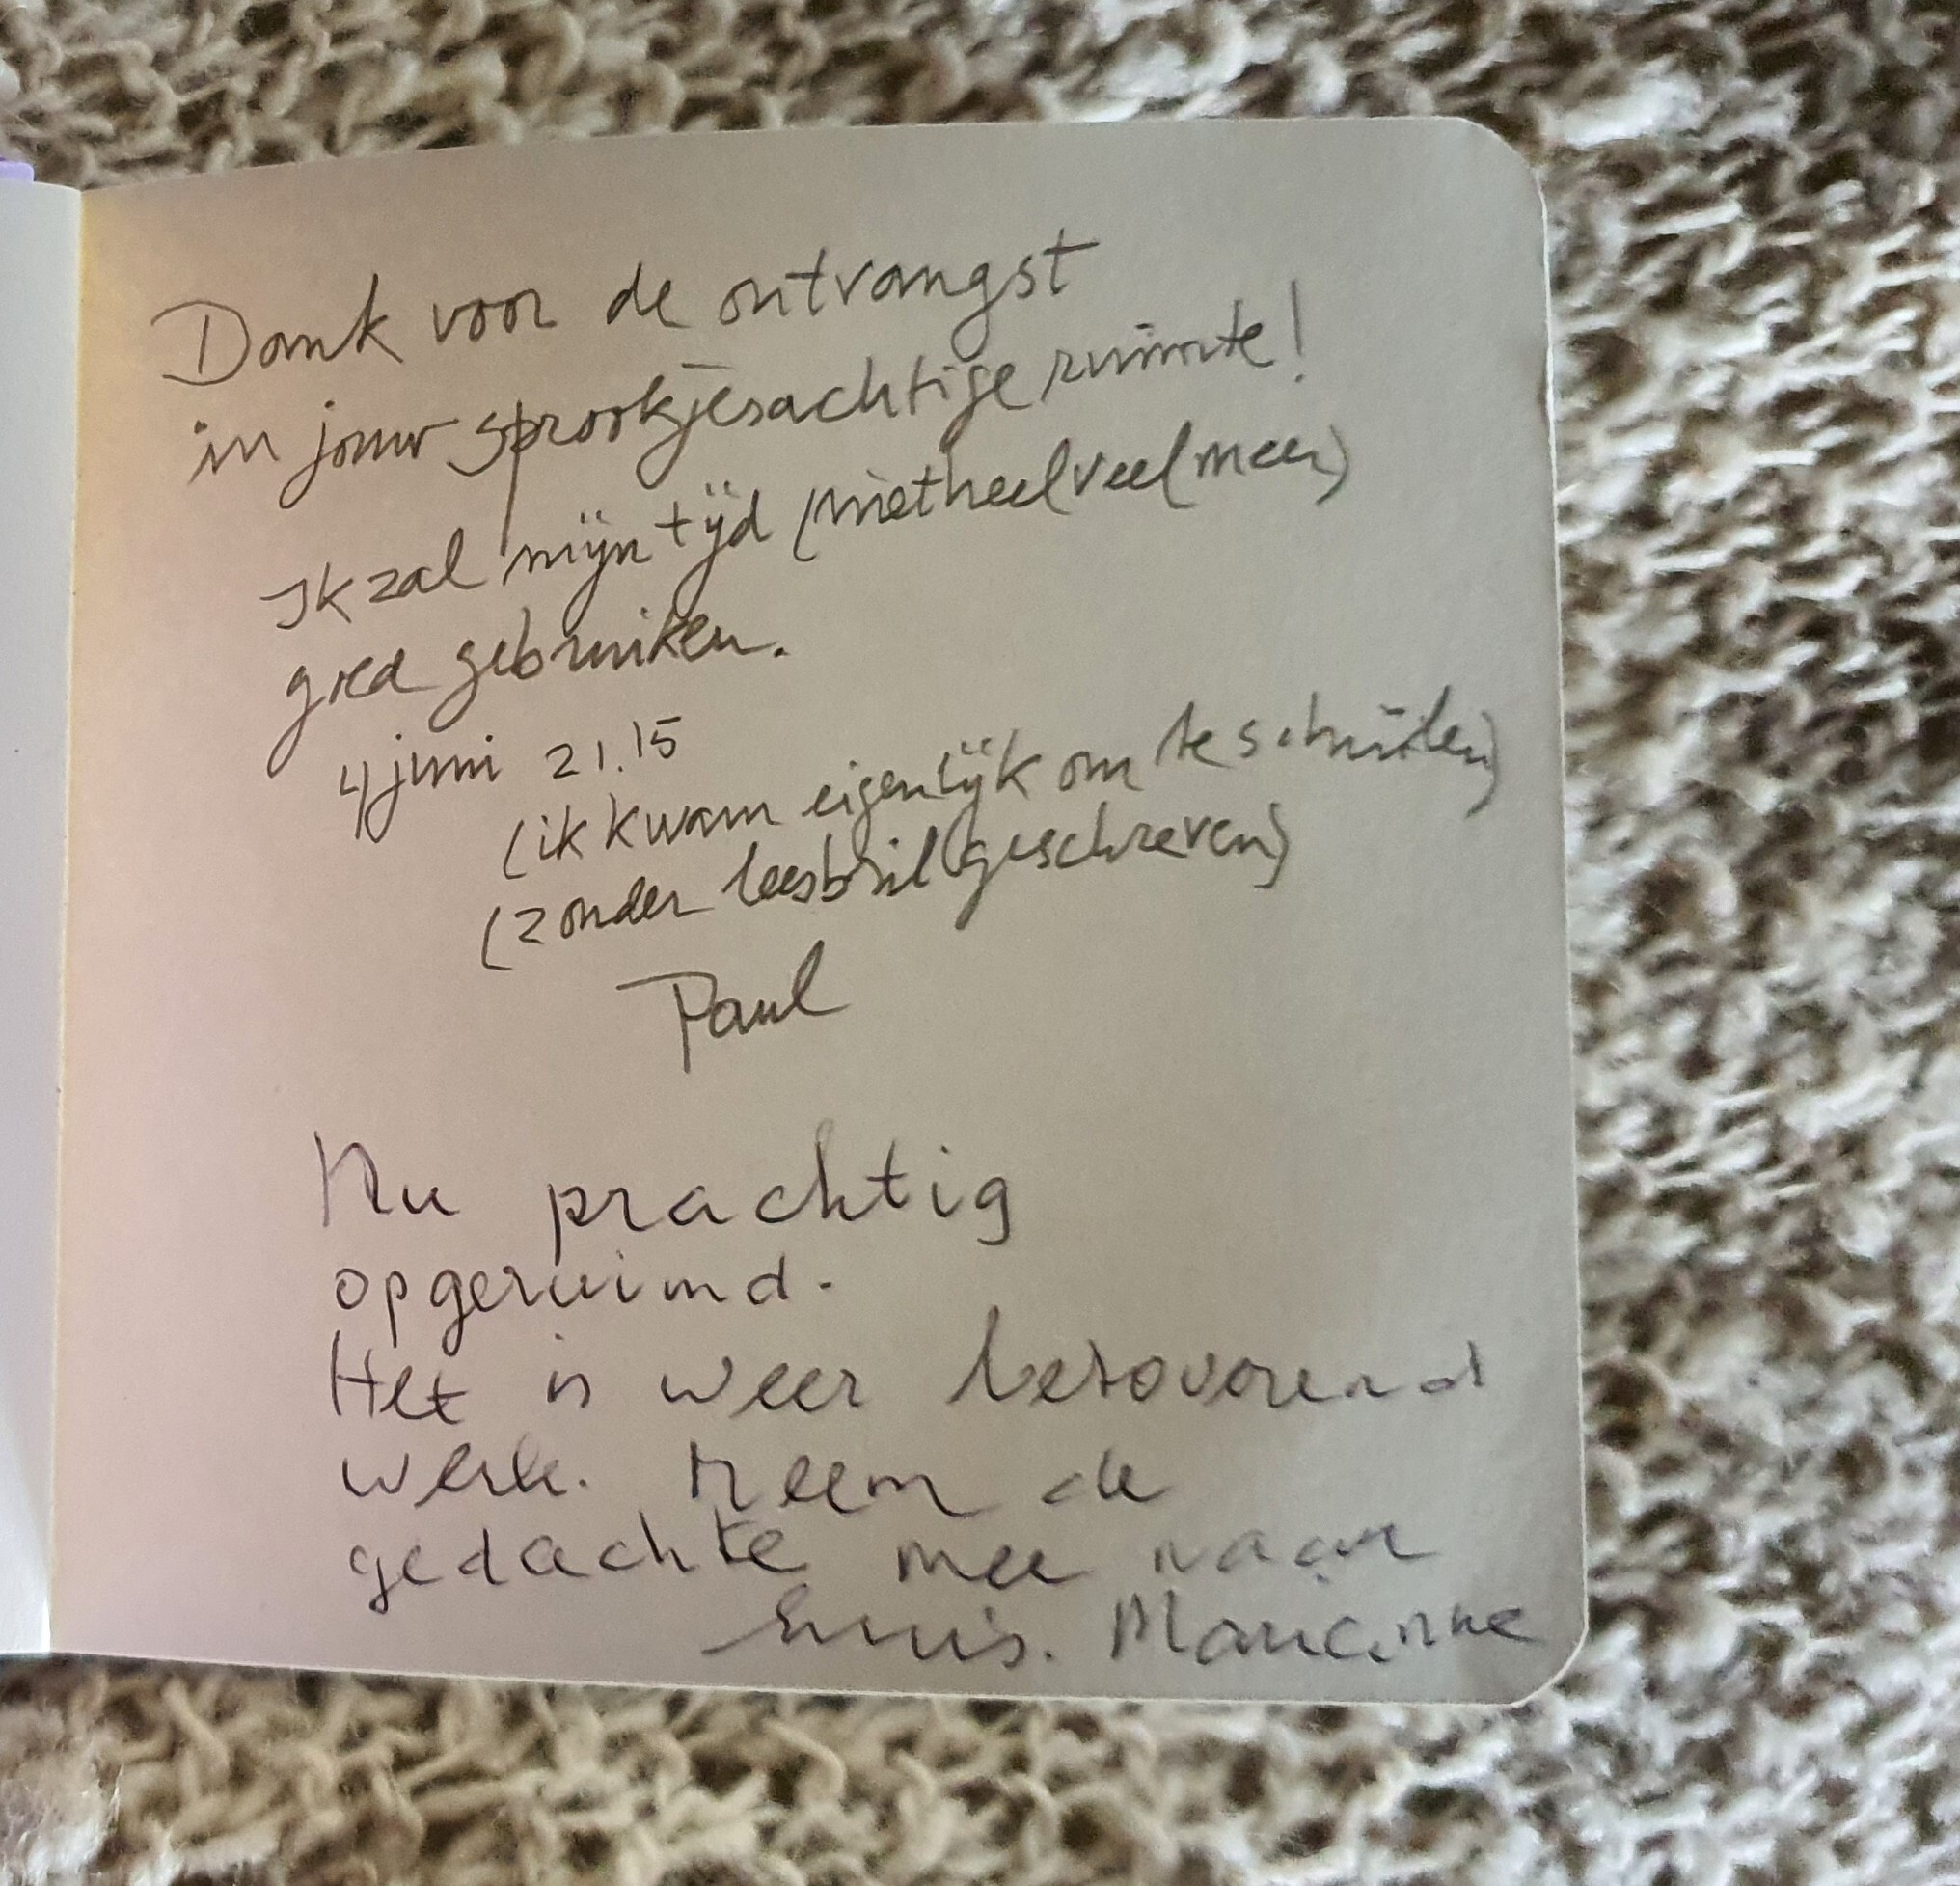 Dank voor de ontvangst
in jouw sprookjesachtige ruimte!
Ik zal mijn tijd (niet heel veel meer)
goed gebruiken.
4 juni 21.15
(ik kwam eigenlijk om te schuilen)
(zonder leesbril geschreven)
Paul
Nu prachtig
opgeruimd.
Het is weer betoverend
werk. Neem de
gedachte mee naar
huis. Marianne